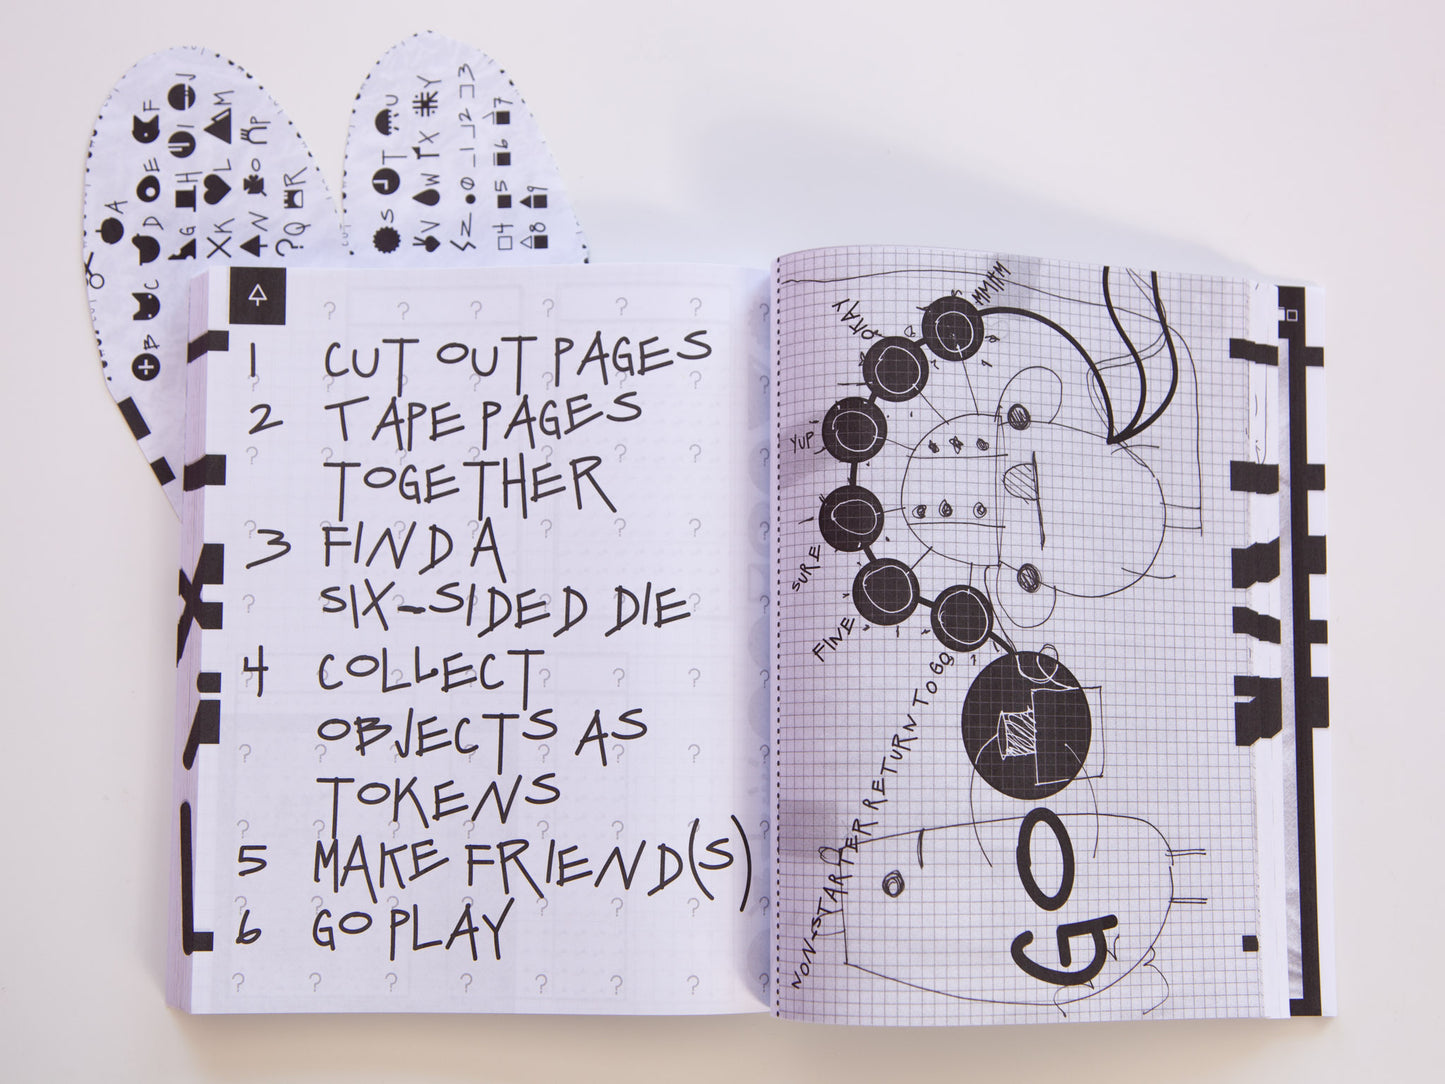 A
B C D E F
G H I J
K L M
N O P
Q R
S T U
V W X Y
Z 0 1 2 3
4 5 6 7
8 9
CUT
1 CUT OUT PAGES
2 TAPE PAGES
TOGETHER
3 FIND A
SIX-SIDED DIE
4 COLLECT
OBJECTS AS
TOKENS
5 MAKE FRIEND(S)
6 GO PLAY
MMHM
OKAY
YUP
SURE
FINE
NON-STARTER RETURN TO GO
GO